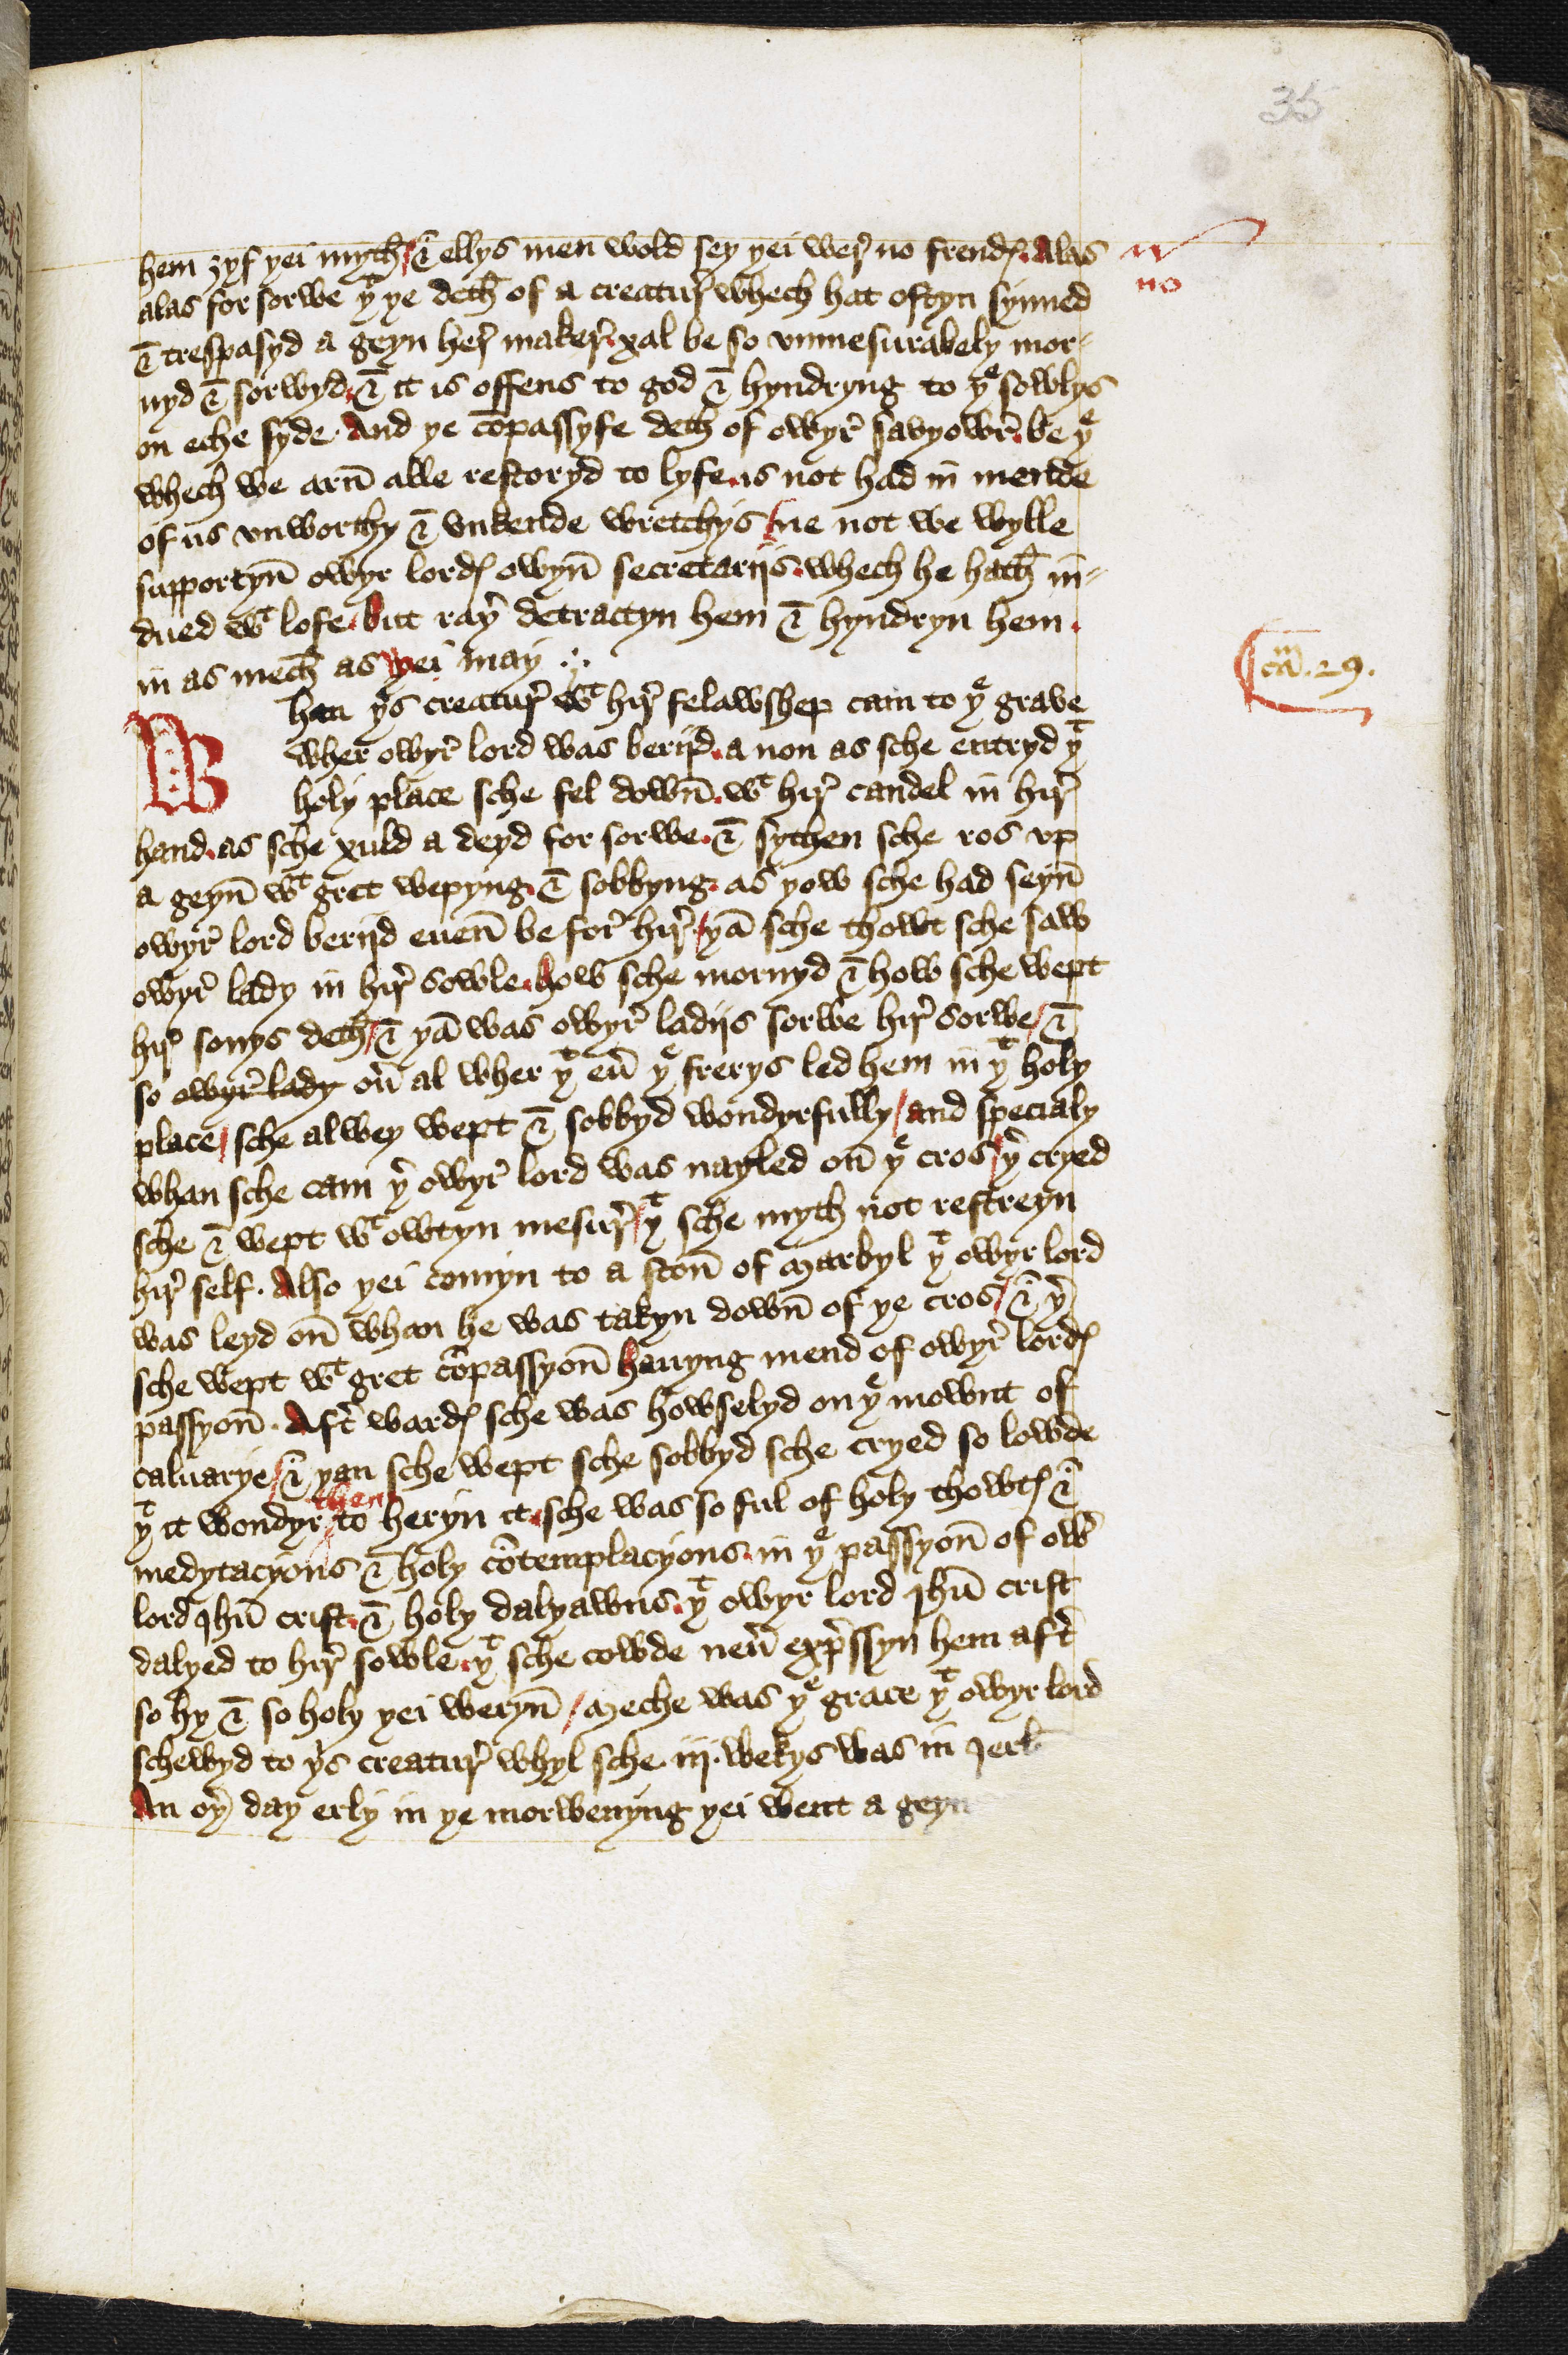 35
hem zyf yei myth / & ellys men wold sey yei wer no frendꝭ. Alas
no
alas for sorwe yͭ ye deth of a creatur whech hat oftyn synned
& trespasyd a geyn her maker. xal be so vnmesurabely mor-
nyd & sorwyd. & it is offens to god & hyndryng to yͤ sowlys
on eche syde. And ye cōpassyfe deth of owyr savyowr. be yͤ
whech we arn̄ alle restoryd to lyfe. is not had in mende
of us vnworthy & vnkende wretchys / ne not we wylle
supportyn̄ owyr lordꝭ owyn̄ secretarijs. whech he hath in-
dued wͭ lofe. but rayͬ detractyn hem & hyndryn hem.
in as mech as yei may ∴
cam̄. 29.
Whan yͥs creatur wͭ hir felawshep cam to yͤ grave
wher owyr lord was berijd. a non as sche entryd yͭ
holy place sche fel down̄. wͭ hir candel in hir
hand. as sche xuld a deyd for sorwe. & sythen sche ros vp
a geyn̄ wͭ gret wepyng. & sobbyng. as yow sche had seyn̄
owyr lord berijd euen̄ be for hir / yā sche thowt sche saw
owyr lady in hir sowle. how sche mornyd & how sche wept
hir sonys deth / & yā was owyr ladijs sorwe hir sorwe / &
so owyr lady oũ al wher yͭ eũ yͤ frerys led hem in yͭ holy
place / sche alwey wept & sobbyd wondyrfully / and specialy
whan sche cam yͬ owyr lord was nayled on̄ yͤ cros / yͬ cryed
sche & wept wͭ owtyn mesur / yͭ sche myth not restreyn
hir self. Also yei comyn to a ston̄ of marbyl yͭ owyr lord
was leyd on̄ whan he was takyn down̄ of ye cros / & yͬ
sche wept wͭ gret cōpassyon̄ hauyng mend of owyr lordꝭ
passyon̄. Aftͬ wardꝭ sche was howselyd on yͤ mownt of
caluarye / & yan sche wept sche sobbyd sche cryed so lowde
yͭ it wondyr then to heryn it. sche was so ful of holy thowtꝭ &
medytacyons & holy cōtemplacyons. in yͤ passyon̄ of owͬ
lord Jhū crist. & holy dalyawns. yͭ owyr lord Jhū crist
dalyed to hir sowle. yͭ sche cowde neũ exp̄ssyn hem aftͬ
so hy & so holy yei weryn̄ / Meche was yͤ grace yͭ owyr lord
schewyd to yͥs creatur whyl sche iij. wekys was in Jerlm̄
An oyͬ day erly in ye morwenyng yei went a geyn